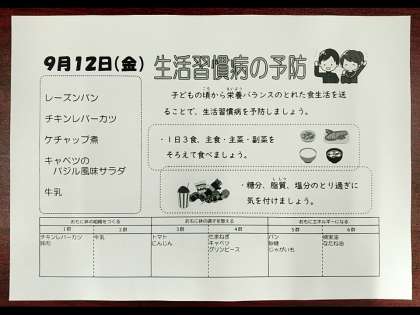 9月12日(金)
生活習慣病の予防
レーズンパン
チキンレバーカツ
ケチャップ煮
キャベツの
バジル風味サラダ
牛乳
子どもの頃から栄養バランスのとれた食生活を送
ることで、生活習慣病を予防しましょう。
・1日3食、主食・主菜・副菜を
そろえて食べましょう。
・糖分、脂質、塩分のとり過ぎに
気を付けましょう。
おもに体の組織をつくる
おもに体の調子を整える
おもにエネルギーになる
1群 2群 3群 4群 5群 6群
チキンレバーカツ 牛乳 トマト たまねぎ パン
にんじん キャベツ 砂糖 なたね油
グリンピース じゃがいも